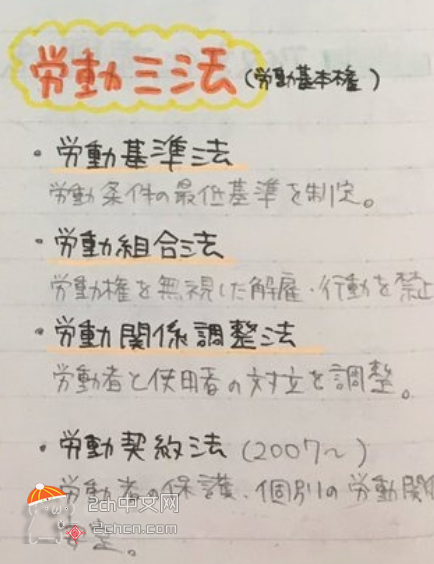 労動三法 (労動基本権)
・労動基準法
労動条件の最低基準を制定。
・労動組合法
労動権を無視した解雇・行動を禁止
・労動関係調整法
労動者と使用者の対立を調整。
・労動契約法 (2007〜)
労動者の保護、個別の労動関係
安定。
2ch中文网
2chcn.com